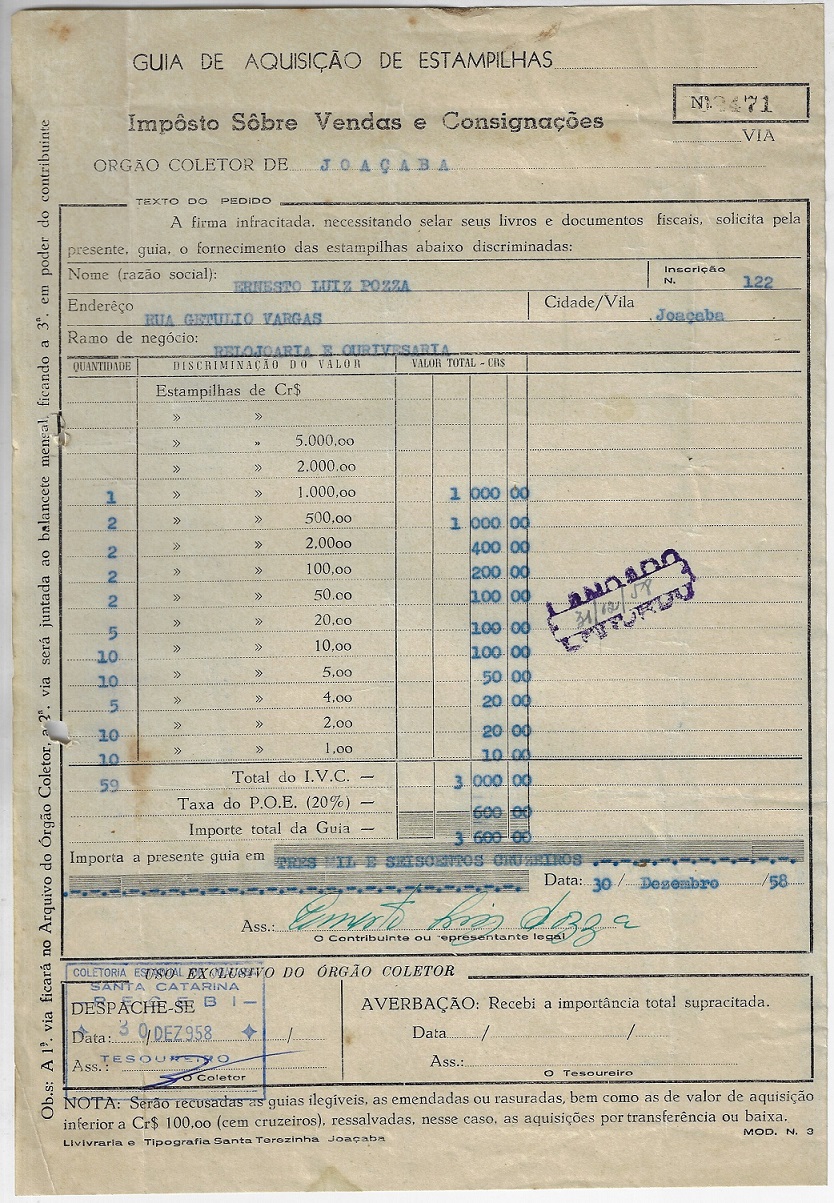 GUIA DE AQUISIÇÃO DE ESTAMPILHAS
Impôsto Sôbre Vendas e Consignações
Nº. 3471
VIA
ORGÃO COLETOR DE JOAÇABA
TEXTO DO PEDIDO
A firma infracitada, necessitando selar seus livros e documentos fiscais, solicita pela
presente, guia, o fornecimento das estampilhas abaixo discriminadas:
Nome (razão social): ERNESTO LUIZ POZZA Inscrição N. 122
Enderêço RUA GETULIO VARGAS Cidade/Vila Joaçaba
Ramo de negócio: RELOJOARIA E OURIVESARIA
QUANTIDADE DISCRIMINAÇÃO DO VALOR VALOR TOTAL - CR$
Estampilhas de Cr$
» »
» » 5.000,00
» » 2.000,00
1 » » 1.000,00 1 000 00
2 » » 500,00 1 000 00
2 » » 2.00oo 400 00
2 » » 100,00 200 00
2 » » 50.00 100 00
5 » » 20.00 100 00
10 » » 10.00 100 00
10 » » 5,00 50 00
5 » » 4,00 20 00
10 » » 2,00 20 00
10 » » 1,00 10 00
59 Total do I.V.C. — 3 000 00
Taxa do P.O.E. (20%) — 600 00
Importe total da Guia — 3 600 00
31/12/58
Importa a presente guia em TRES MIL E SEISCENTOS CRUZEIROS
Data: 30 / Dezembro /58
Ass.: Ernesto Luiz Pozza
O Contribuinte ou representante legal
USO EXCLUSIVO DO ÓRGÃO COLETOR
COLETORIA ESTADUAL
SANTA CATARINA
RECEBI
30 DEZ 958
TESOUREIRO
DESPACHE-SE
Data: / /
Ass.:
O Coletor
AVERBAÇÃO: Recebi a importância total supracitada.
Data / /
Ass.:
O Tesoureiro
NOTA: Serão recusadas as guias ilegíveis, as emendadas ou rasuradas, bem como as de valor de aquisição
inferior a Cr$ 100,00 (cem cruzeiros), ressalvadas, nesse caso, as aquisições por transferência ou baixa.
Livivraria e Tipografia Santa Terezinha Joaçaba MOD. N. 3
Ob.s: A 1ª. via ficará no Arquivo do Órgão Coletor, a 2ª. via será juntada ao balancete mensal, ficando a 3ª. em poder do contribuinte